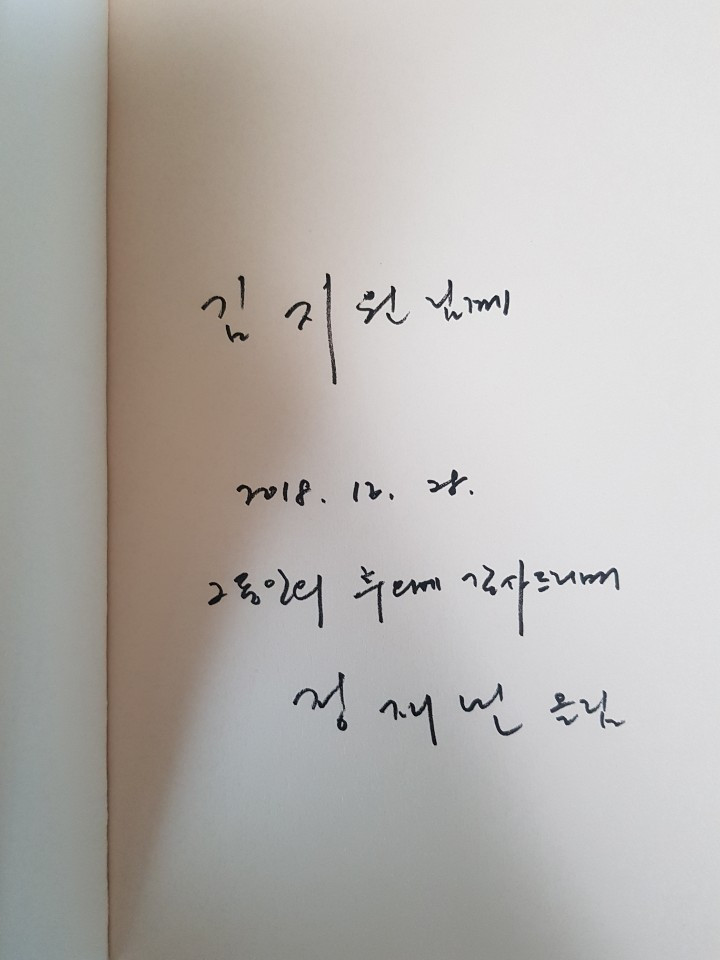 김 지 원 님께
2018. 12. 28.
그동안의 후의에 감사드리며
정 재 년 올림